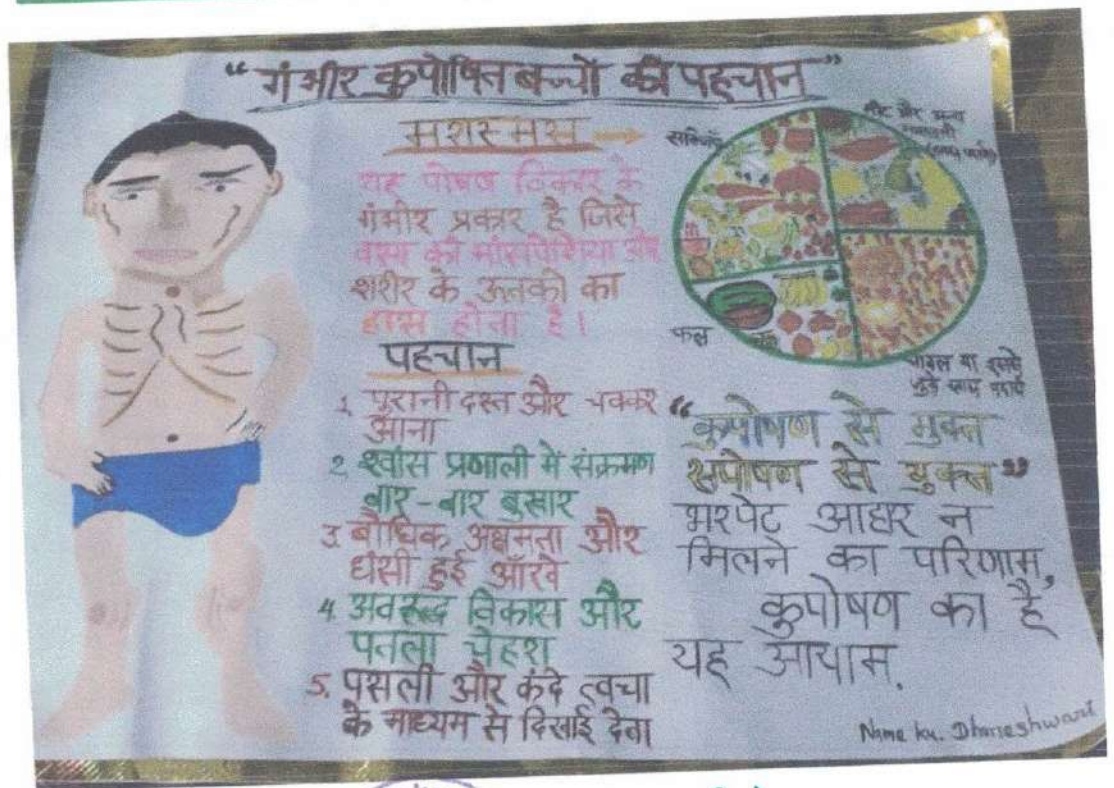 “गंभीर कुपोषित बच्चों की पहचान”
मरास्मस
यह पोषण विकार के
गंभीर प्रकार है जिसे
वस्य की मांसपेशिया और
शरीर के ऊतको का
ह्रास होता है।
पहचान
1. पुरानी दस्त और चक्कर
आना
2 श्वांस प्रणाली मे संक्रमण
बार-बार बुखार
3. बौधिक अक्षमता और
धंसी हुई आँखे
4. अवरूद्ध विकास और
पतला चेहरा
5. पसली और कंदे त्वचा
के माध्यम से दिखाई देना
सब्जियाँ
मीट और अन्य
फल
चावल या इससे
“कुपोषण से मुक्त
सुपोषण से युक्त”
भरपेट आहार न
मिलने का परिणाम,
कुपोषण का है
यह आयाम.
Name ku. Dhaneshwari